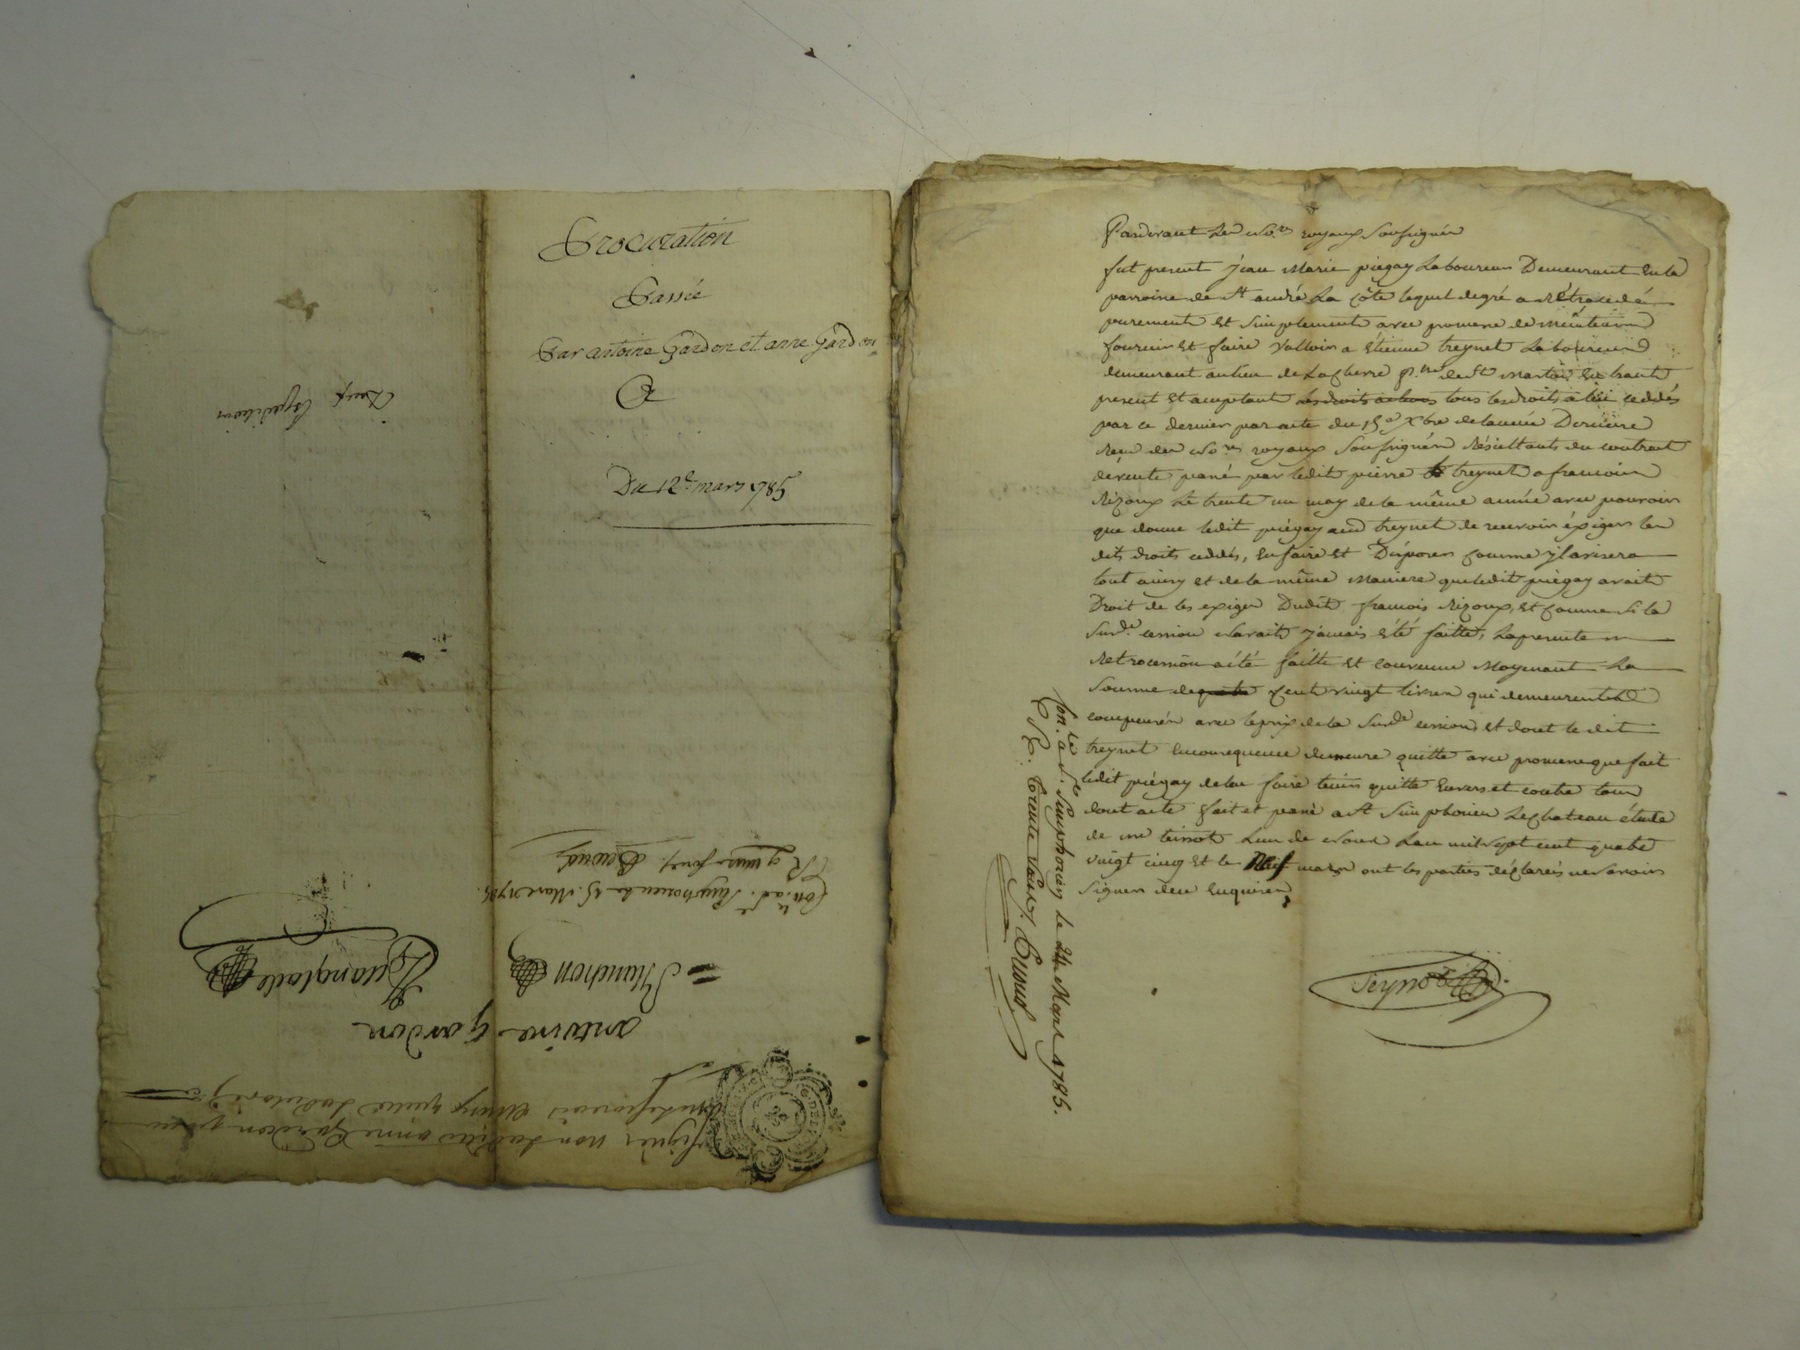 Procuration
Passée
Par antoine Gardon et anne Gardon
Du 12e mars 1785
Deux Expeditions
Con.lé a St. Simphorien le 15. Mars 1785.
R quinze sous. Benoud
antoine Gardon
signer non ladite anne Gardon pour
Pardevant Les No.res royaux Soussignés
fut present Jean Marie piegay Laboureur Demeurant en la
parroisse de St andré La Côte lequel degré a Rétrocédé
purement et simplement avec promesse de Maintenir
fournir et faire Valloir a Etienne treynet Laboureur
demeurant au lieu de p.sse de St Martin En haut
present et acceptant les droits tous les droits a lui cedés
par ce dernier par acte du 15e Xbre de lannée Derniere
Recu des No.res royaux Soussignés Résultants du contrat
de vente passé par ledit pierre treynet a francois
Rizoux Le trente un may de la même année avec pouvoir
que donne ledit piegay aud treynet de recevoir éxiger les
dits droits cedés, En faire et Disposer comme il avisera
tout ainsy et de la même Maniere que ledit piegay avait
Droit de les exiger Dudit francois Rizoux, et comme si la
Susd.e cession Navait Jamais Eté faitte, La presente
Retrocession a été faitte et convenue Moyenant La
Somme de Cent vingt livres qui demeurent
compensés avec le prix de la Susd.e cession, et dont le dit
treynet En consequence demeure quitte avec promesse que fait
ledit piégay de len faire tenir quitte Envers et contre tous
dont acte fait et passé a St Simphorien Le chateau étude
de me teissot Lun de Nous Lan mil sept cent quatre
vingt cinq et le Neuf mars ont les parties déclaré ne savoir
Signer de ce Enquises
Con.lé a St. Simphorien le 24 Mars 1785.
R. trente sous. Benoud